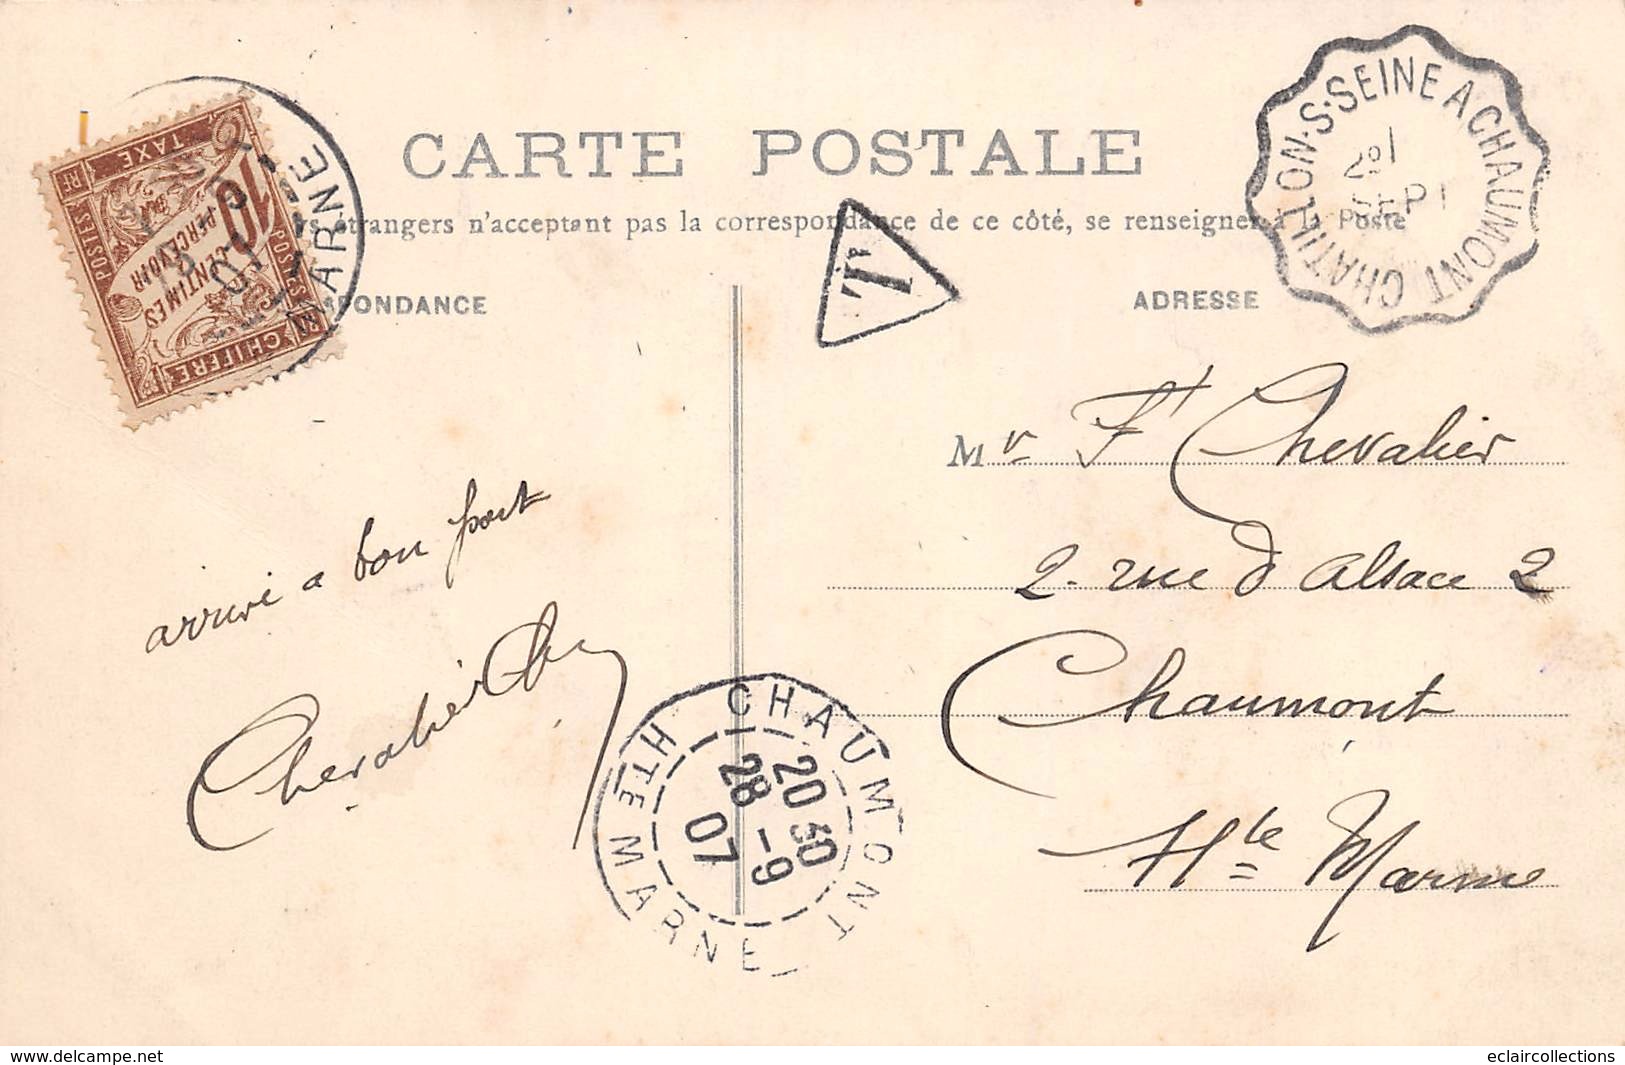 CARTE POSTALE
rs étrangers n'acceptent pas la correspondance de ce côté, se renseigner à la Poste
PONDANCE
ADRESSE
CHATILLON-S-SEINE A CHAUMONT
SEPT
T
10
CENTIMES
A PERCEVOIR
POSTES
TAXE
CHIFFRE
RF
RF
MARNE
07
Mr F Chevalier
2. rue d'alsace 2
Chaumont
Hte Marne
arrivé a bon port
Chevalier
CHAUMONT
HTE MARNE
20 30
28 -9
07
www.delcampe.net
eclaircollections